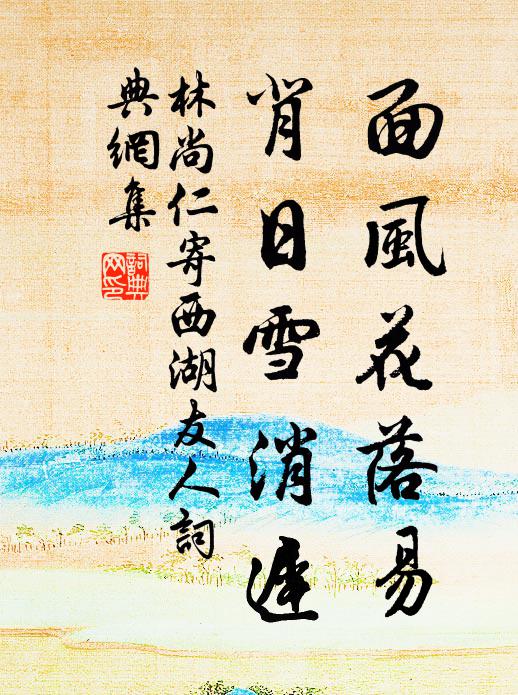 面風花落易
背日雪消遲
林尚仁寄西湖友人詞
典網集
詞典
网印